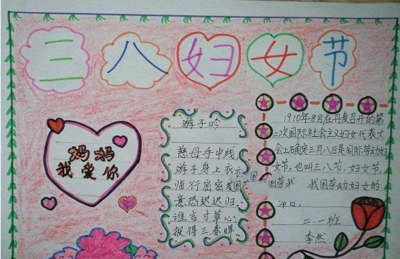 三八妇女节
妈妈
我爱你
游子吟
慈母手中线
游子身上衣
临行密密
意恐迟迟归
谁言寸草心
报得三春晖
1910年8月在丹麦召开的第
二次国际社会主义妇女代表大
会上确定三月八日是国际劳动妇
女节,也叫三八节,妇女节,
我国劳动妇女的
节日。
二一班
李然